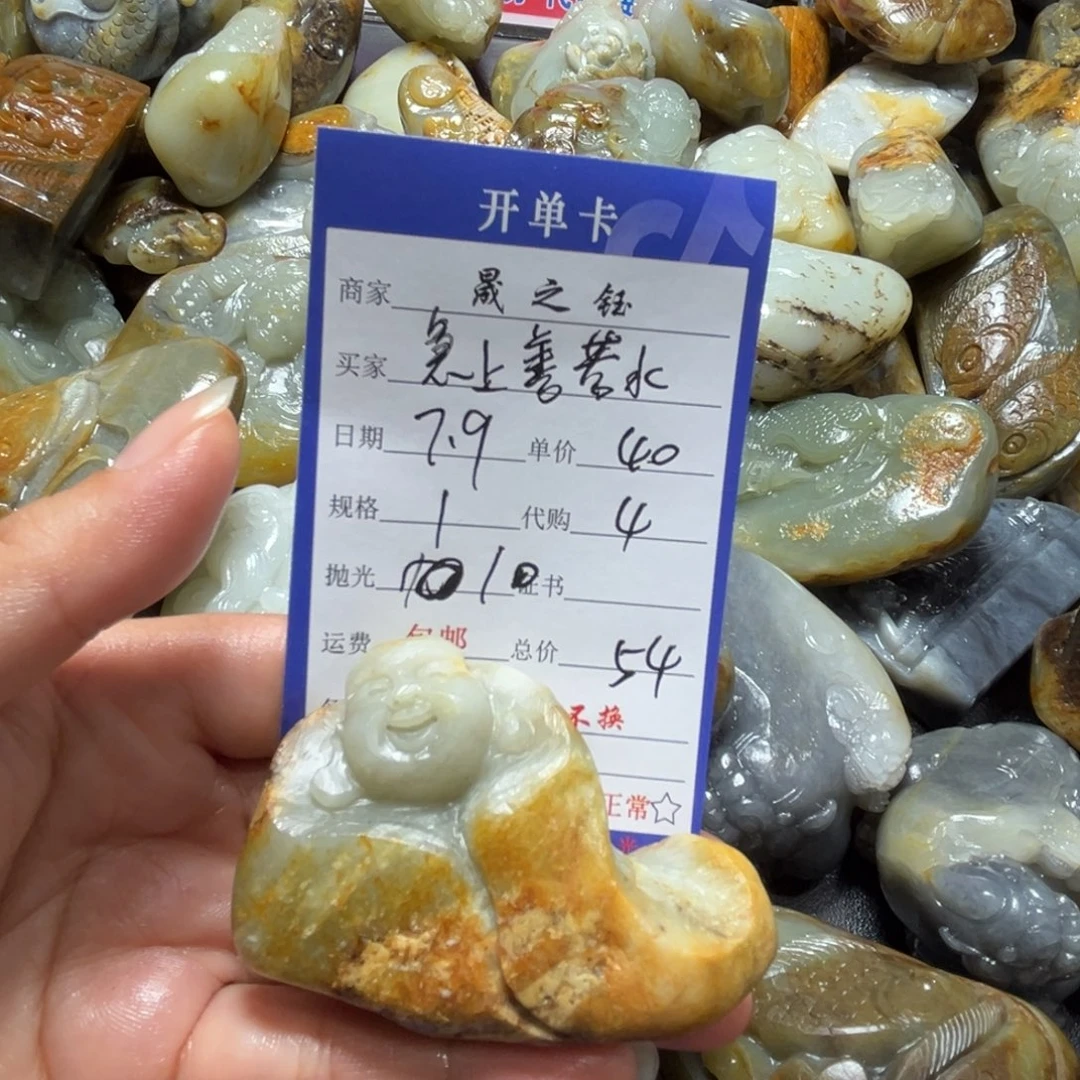 开单卡
商家 晟之钰
买家 急上善若水
日期 7.9 单价 40
规格 1 代购 4
抛光 10 证书
运费 包邮 总价 54
不换
正常☆